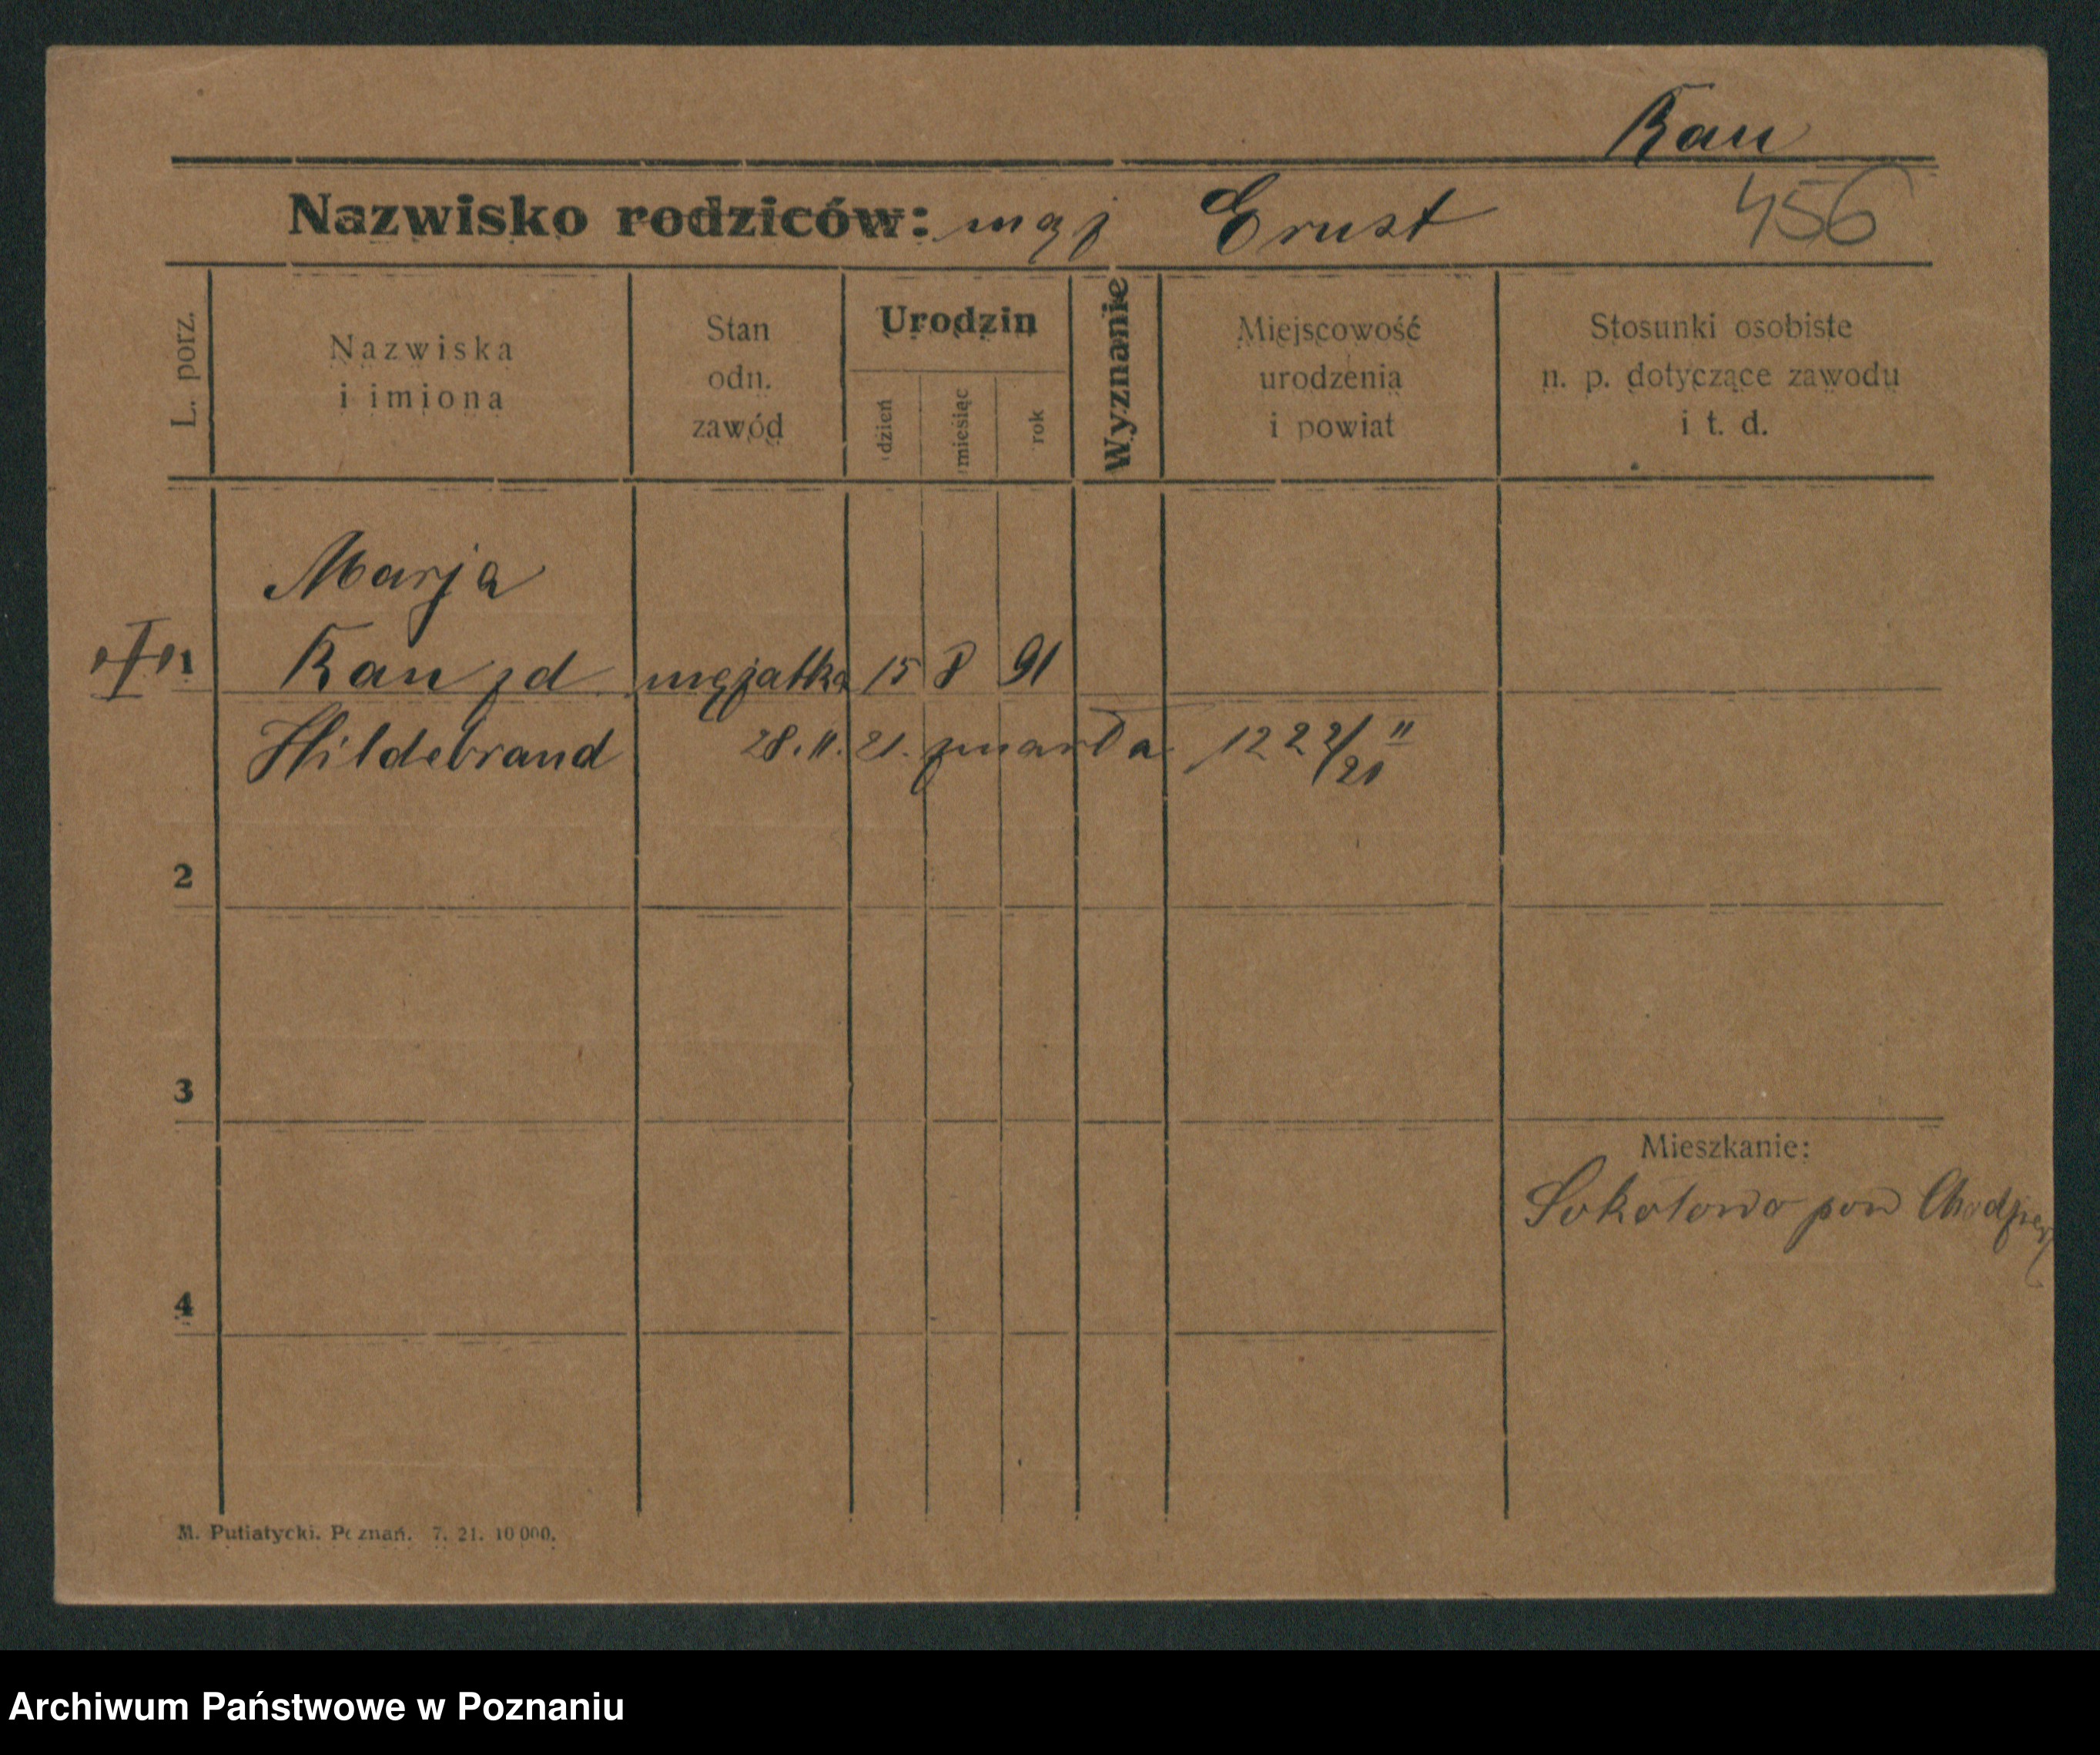 Rau
Nazwisko rodziców: mąż Ernst 456
L. porz.
Nazwiska
i imiona
Stan
odn.
zawód
Urodzin
dzień
miesiąc
rok
Wyznanie
Miejscowość
urodzenia
i powiat
Stosunki osobiste
n. p. dotyczące zawodu
i t. d.
Marja
1 Rau zd mężatka 15 8 91
Hildebrand 28. 11. 21. zmarła 1222/21 II
2
3
Mieszkanie:
Sokołowo pow
4
M. Putiatycki. Poznań. 7. 21. 10 000.
Archiwum Państwowe w Poznaniu